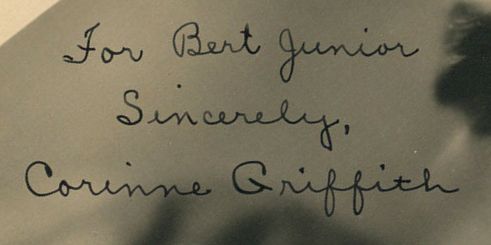 For Bert Junior
Sincerely,
Corinne Griffith